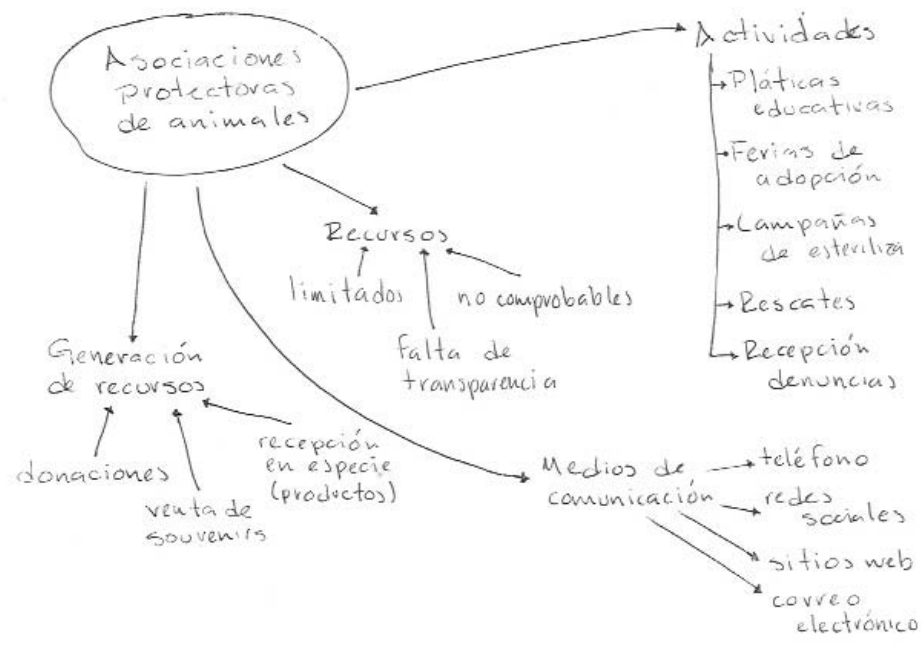 Asociaciones
protectoras
de animales
Actividades
Pláticas
educativas
Ferias de
adopción
Campañas
de esteriliza
Rescates
Recepción
denuncias
Recursos
limitados
no comprobables
falta de
transparencia
Generación
de recursos
donaciones
venta de
souvenirs
recepción
en especie
(productos)
Medios de
comunicación
teléfono
redes
sociales
sitios web
correo
electrónico